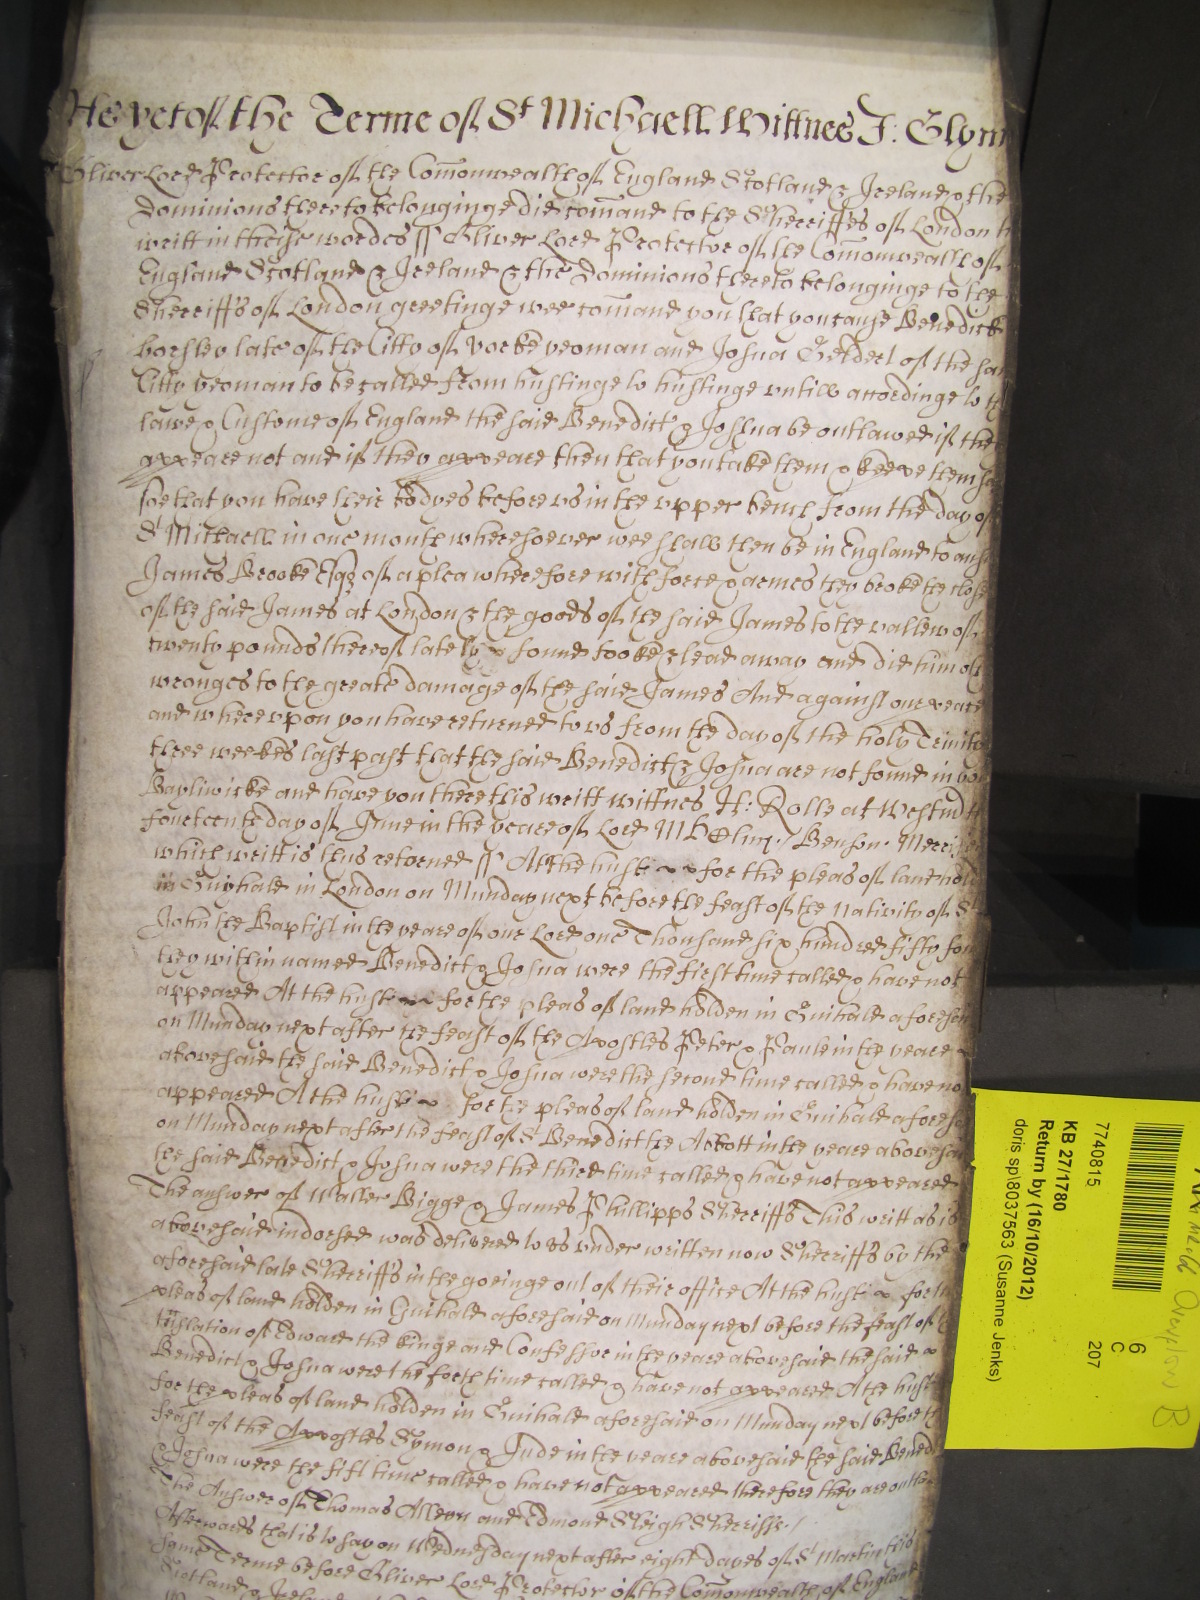 yet of the Terme of St Michaell Wittnes J: Glyn
Oliver Lord Protector of the Com̄onwealth of England Scotland & Ireland & the
Dominions thereto belonginge did com̄and to the Sherriffes of London
writt in theise wordes ss Oliver Lord Protector of the Com̄onwealth of
England Scotland & Ireland & the Dominions thereto belonginge to the
Sherriffs of London greetinge wee com̄and you that you cause Benedick
horsley late of the Citty of Yorke yeoman and Joshua Geldert of the sa
Citty yeoman to be called from hustinge to hustinge untill accordinge to th
lawe & Custome of England the said Benedict & Joshua be outlawed if the
appeare not and if they appeare then that you take them & keepe them sa
soe that you have their bodyes before us in the upper bench from the day of
St Michaell in one month wheresoever wee shall then be in England to answ
James Brooke Esqr of a plea wherefore with force & armes they broke the close
of the said James at London & the goods of the said James to the vallew of
twenty pounds thereof lately found tooke & lead away and did him oth
wronges to the greate damage of the said James And against our peace
and whereupon you have returned to us from the day of the holy Trinit
three weekes last past that the said Benedict & Joshua are not found in yo
Bayliwicke and have you there this writt wittnes H: Rolle at Westm̄ th
fourteenth day of June in the yeare of Lord Benson. Merri
which writt is thus returned ss At the hust for the pleas of land hold
in Guyhald in London on Munday next before the feast of the Nativity of St
John the Baptist in the yeare of our Lord one Thousand six hundred fifty fou
they within named Benedict & Joshua were the first time called & have not
appeared At the hust for the pleas of land holden in Guihald aforesaid
on Munday next after the feast of the Apostles Peter & Paule in the yeare
abovesaid the said Benedict & Joshua were the second time called & have no
appeared At the hust for the pleas of land holden in Guihald aforesa
on Munday next after the feast of St Benedict the Abbott in the yeare abovesa
the said Benedict & Joshua were the third time called & have not appeared
The answer of Walter Bigge & James Phillipps Sherriffs This writt as is
abovesaid indorsed was delivered to us under written now Sherriffs by the
aforesaid late Sherriffs in the goeinge out of their office At the hust for the
pleas of land holden in Guihald aforesaid on Munday next before the feast of
translation of Edward the Kinge and Confessor in the yeare abovesaid the said
Benedict & Joshua were the forth time called & have not appeared At the hust
for the pleas of land holden in Guihald aforesaid on Munday next before th
feast of the Appostles Symon & Jude in the yeare abovesaid the said Bened
& Joshua were the fift time called & have not appeared therefore they are outla
The Answer of Thomas Alleyn and Edmond Sleigh Sherriffs
Afterwards that is to say on Wednesday next after eight dayes of St Martin this
same Terme before Oliver Lord Protector of the Com̄onwealth of England
Scotland & Ireland
7740815
6
C
207
KB 27/1780
Return by (16/10/2012)
doris sp\8037563 (Susanne Jenks)